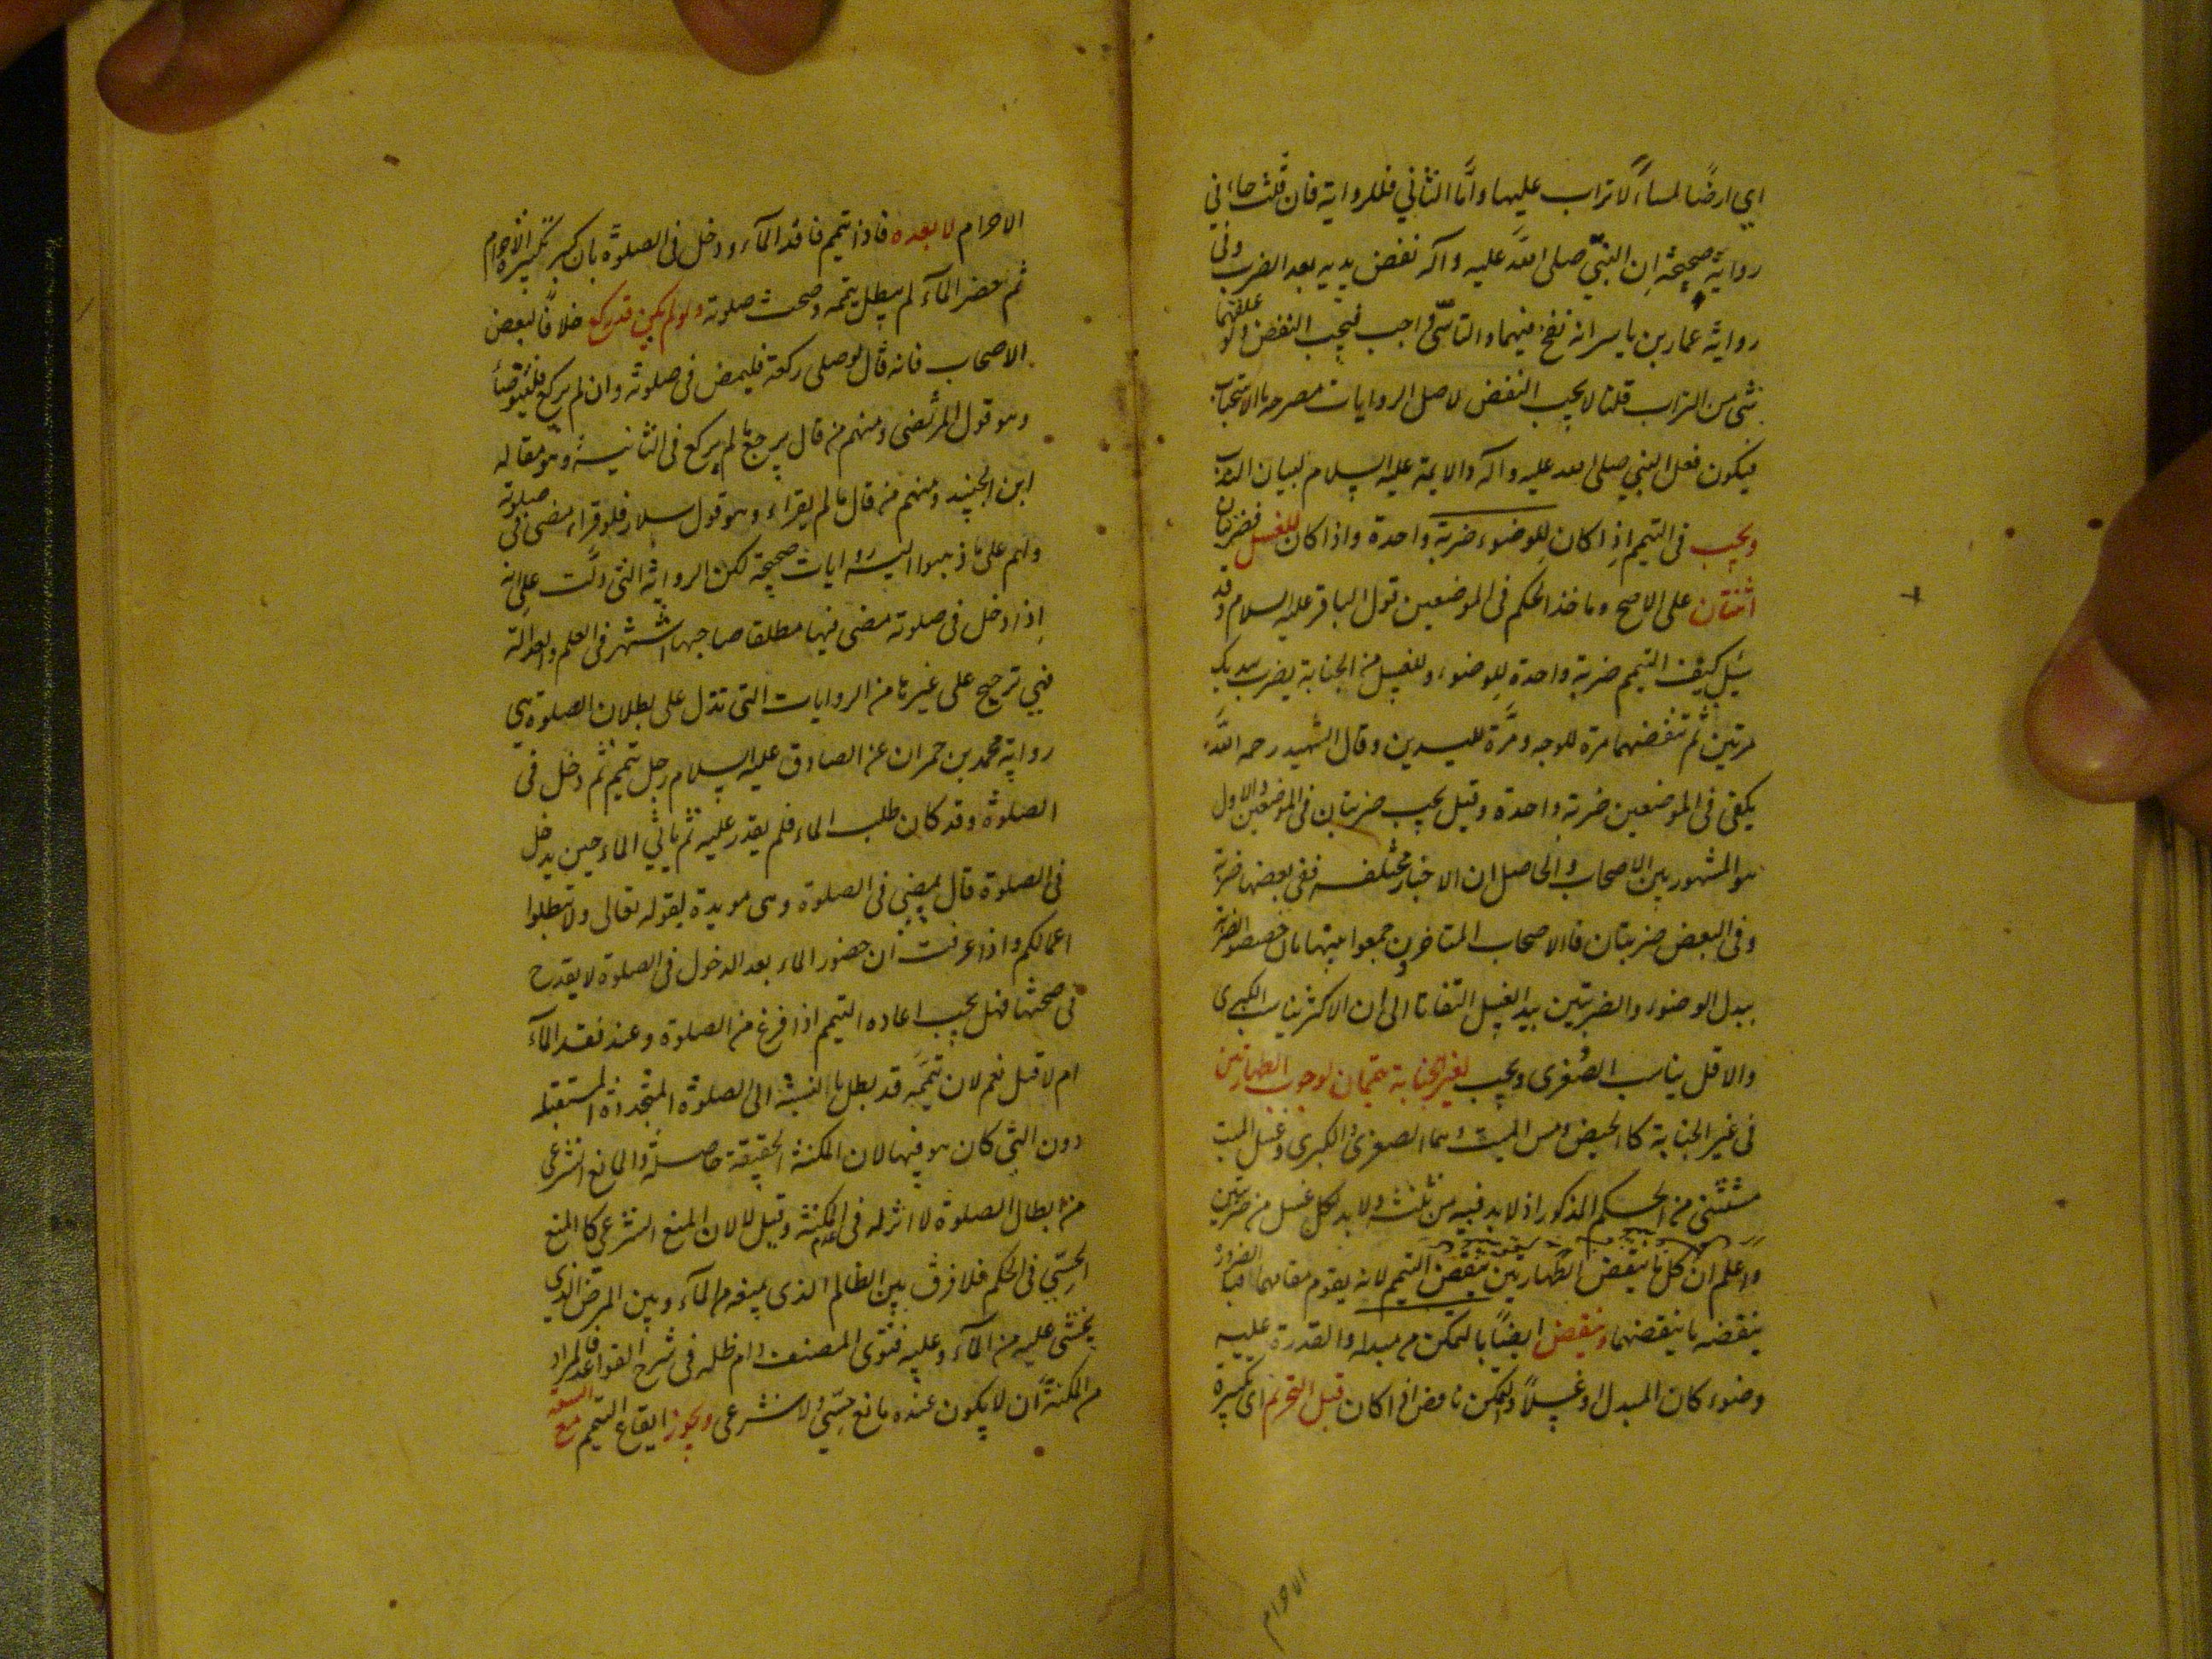 اي ارضًا ملساءً لا تراب عليها وامّا الثاني فللرواية فان قلت جاء في
رواية صحيحة ان النبيّ صلى الله عليه وآله نفض يديه بعد الضرب وفي
رواية عمار بن ياسر انه نفخ فيهما والتأسّي واجب فيجب النفض ولو علقهما
شي من التراب قلنا لا يجب النفض لاصل الروايات مصرحة بالاستحباب
فيكون فعل النبي صلى الله عليه وآله والايمة عليه السلام لبيان الندب
ويجب في التيمم اذا كان للوضوء ضربة واحدة واذا كان للغسل فضربتان
اثنتان على الاصح وماخذ الحكم في الموضعين قول الباقر عليه السلام وقد
سئل كيف التيمم ضربة واحدة للوضوء وللغسل من الجنابة يضرب بيديك
مرتين ثم تنفضهما مرة للوجه ومرّة لليدين وقال الشهيد رحمه الله
يكفي في الموضعين ضربة واحدة وقيل يجب ضربتان في الموضعين والاول
هو المشهور بين الاصحاب والحاصل ان الاخبار مختلفه ففي بعضها ضربة
وفي البعض ضربتان فاالاصحاب المتاخرون جمعوا بينها بان خصصوا الضربة
ببدل الوضوء والضربتين ببدل الغسل التفاتا الى ان الاكثر يناسب الكبرى
والاقل يناسب الصغرى ويجب لغير الجنابة تيممان لوجوب الطهارتين
في غير الجنابة كالحيض ومس الميت وهما الصغرى والكبرى وغسل الميت
مستثنى من الحكم المذكور اذ لا بد فيه من ثلثة ولا بد لكل غسل من ضربتين
واعلم ان كل ما ينقض الطهارتين ينقض التيمم لانه يقوم مقامهما فبالضرورة
ينقضه ما ينقضهما وينقض ايضًا بالتمكن من مبدله والقدرة عليه
وضوء كان المبدل او غسلاً والتمكن ناقض اذا كان قبل التحريم اى تكبيرة
الاحرام
الاحرام لا بعده فاذا تيمم فاقد المآء ودخل في الصلوة بان كبر تكبيرة الاحرام
ثم حضر المآء لم يبطل تيممه وصحت صلوته ولو لم يكن قد ركع خلافًا لبعض
الاصحاب فانه قال لو صلى ركعة فليمض في صلوته وان لم يركع فليتوضأ
وهو قول المرتضى ومنهم من قال يرجع ما لم يركع في الثانية وهو مقاله
ابن الجنيد ومنهم من قال ما لم يقراء وهو قول سلار فلو قراء مضى في صلوته
ولهم على ما ذهبوا اليه روايات صحيحة لكن الرواية التي دلّت على انه
اذا دخل في صلوته مضى فيها مطلقا صاحبها اشتهر في العلم والعدالة
فهي ترجح على غيرها من الروايات التي تدل على بطلان الصلوة هي
رواية محمد بن حمران عن الصادق عليه السلام رجل تيمم ثم دخل في
الصلوة وقد كان طلب الماء فلم يقدر عليه ثم ياتي الماء حين يدخل
في الصلوة قال يمضي في الصلوة وهى مويدة لقوله تعالى ولا تبطلوا
اعمالكم واذا عرفت ان حضور الماء بعد الدخول في الصلوة لا يقدح
في صحتها فهل يجب اعاده التيمم اذا فرغ من الصلوة وعند فقد المآء
ام لا قيل نعم لان تيممه قد بطل بالنسبة الى الصلوة المتجددة المستقبله
دون التي كان هو فيها لان المكنة الحقيقة حاصلة والمانع الشرعي
من ابطال الصلوة لا اثر له في عدم المكنة وقيل لا لان المنع الشرعي كالمنع
الحسّي في الحكم فلا فرق بين الظالم الذي يمنعه من المآء وبين المرض الذي
يخشى عليه من المآء وعليه فتوى المصنف دام ظله في شرح القواعد فالمراد
من المكنة ان لا يكون عنده مانع حسّي ولا شرعي ويجوز ايقاع التيمم مع السعة